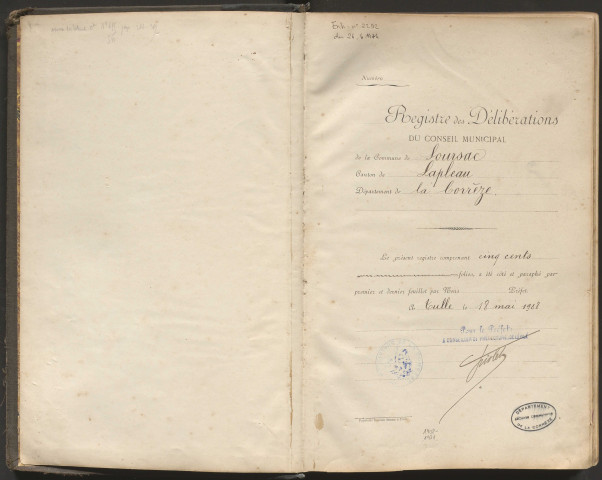 Numéro
Registre des Délibérations
DU CONSEIL MUNICIPAL
de la Commune de Soursac
Canton de Lapleau
Département de la Corrèze
Le présent registre comprenant cinq cents
folios, a été coté et paraphé par
premier et dernier feuillet par Nous Préfet
A Tulle le 18 mai 1908
Pour le Préfet
DÉPARTEMENT
DE LA CORRÈZE